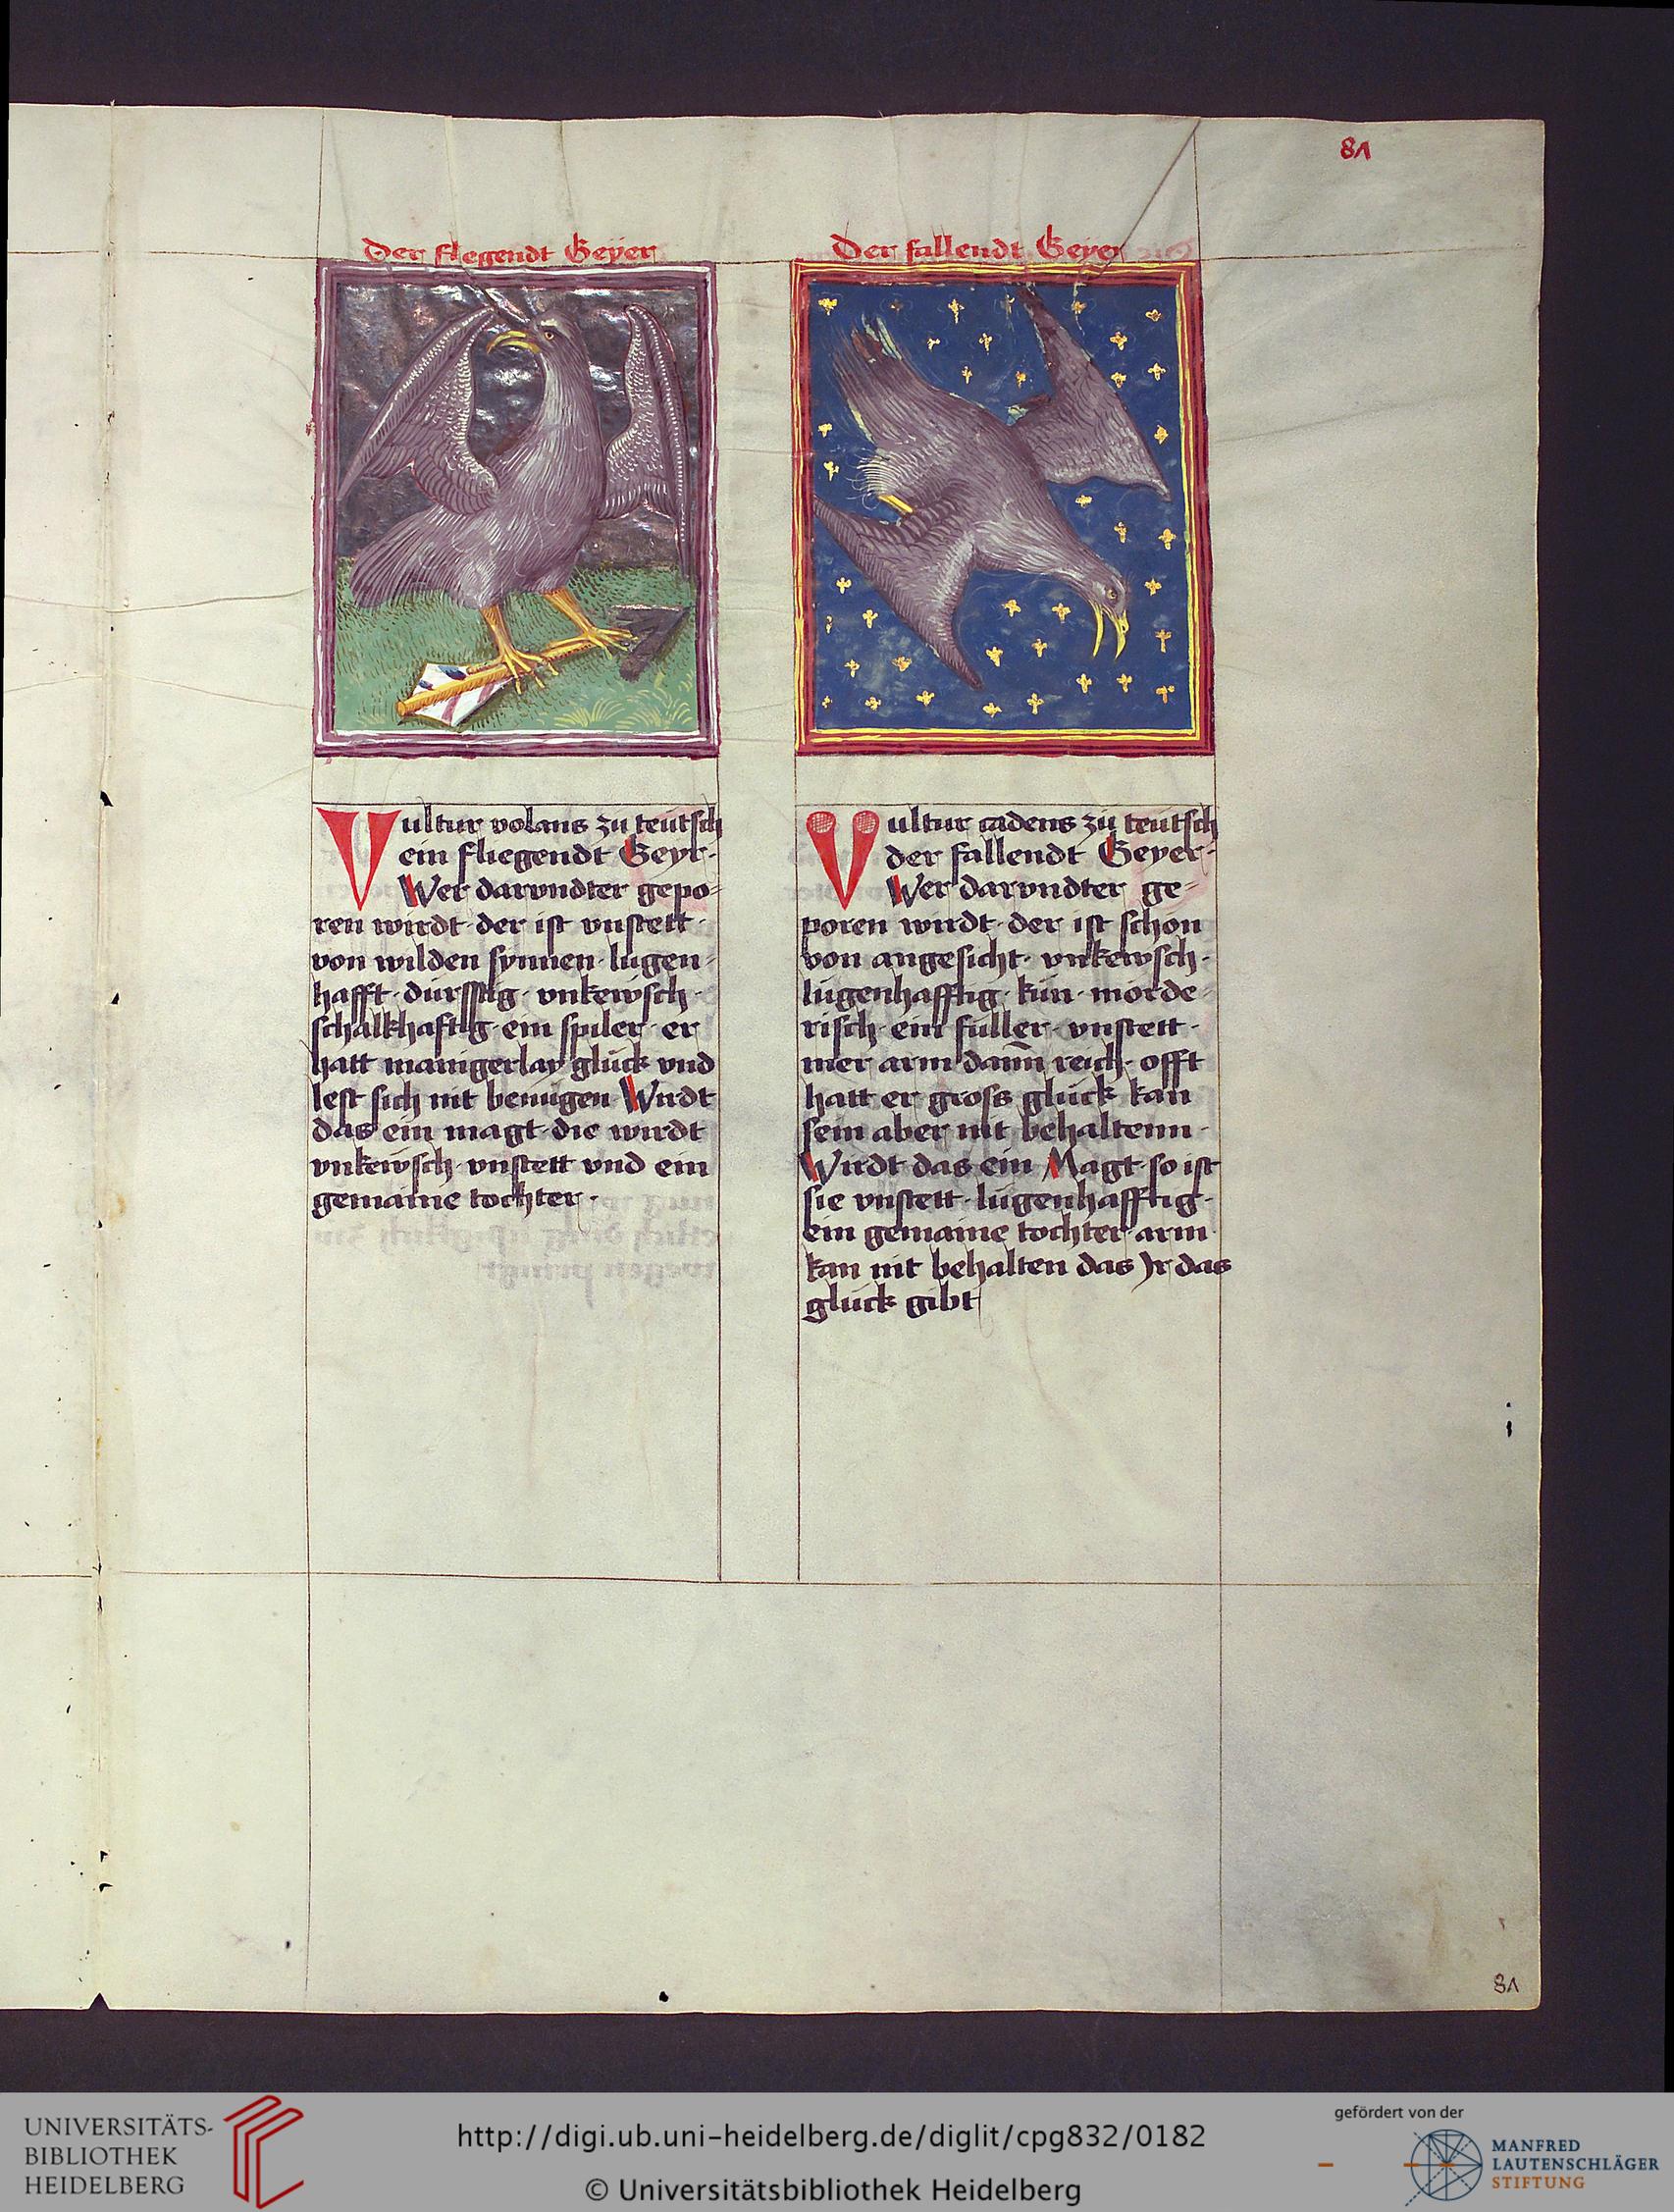 81
Der flegendt Geÿer
Vultur volans zu teutsch
ein fliegendt Geyr·
Wer darvndter gepo-
ren wirdt· der ist vnstett·
von wilden synnen· lugen-
hafft· dursstig· vnkewsch·
schalkhaftig· ein spiler· er
hatt manigerlay glück vnd
lest sich nit benügen Wirdt
das ein magt· die wirdt
vnkewsch· vnstett vnd ein
gemaine tochter·
Der fallendt Geyer
Vultur cadens zü teutsch
der fallendt Geyer·
Wer darvndter ge-
poren wirdt· der ist schon
von angesicht· vnkewsch·
lügenhafftig· kün· mörde-
risch· ein füller· vnstett·
mer arm dann̄ reich· offt
hatt er gross glück kan
sein aber nit behaltenn·
Wirdt das ein Magt· so ist
sie vnstett· lügenhafftig·
ein gemaine tochter· arm
kan nit behalten das Jr das
glück gibt
81
UNIVERSITÄTS-
BIBLIOTHEK
HEIDELBERG
http://digi.ub.uni-heidelberg.de/diglit/cpg832/0182
© Universitätsbibliothek Heidelberg
gefördert von der
MANFRED
LAUTENSCHLÄGER
STIFTUNG